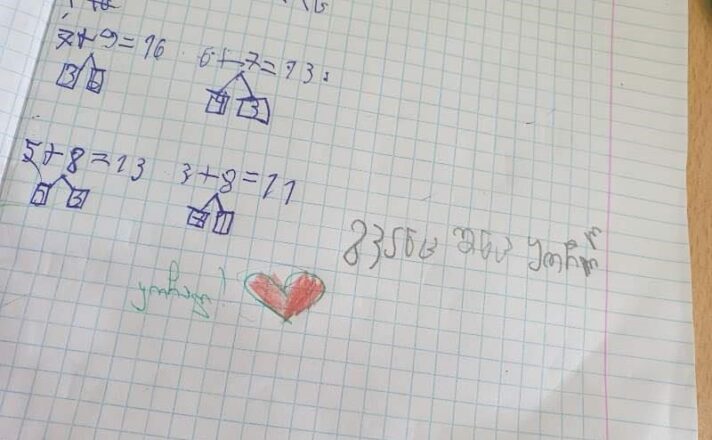 7+9=16 6+7=13
3 6 4 3
5+8=13 3+8=11
5 3 7 1
ყოჩაღ
ყოჩაღ!